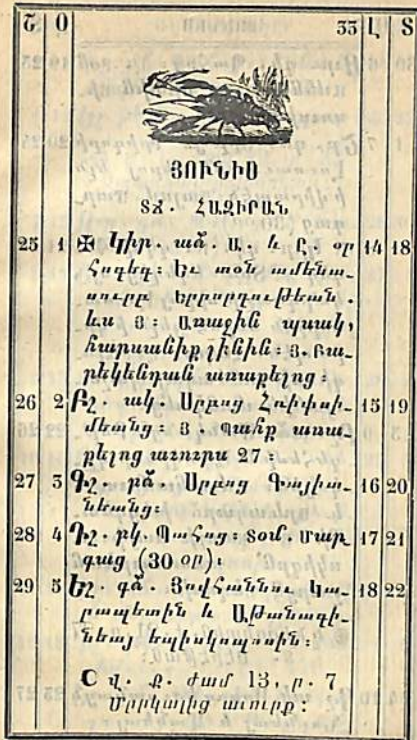 Շ Օ 33 Լ Տ
ՅՈՒՆԻՍ
ՏՃ. ՀԱԶԻՐԱՆ
25 1 ✠ Կիր. աձ. Ա. և Ը. օր 14 18
Հոգեգ։ Եւ տօն ամենա֊
սուրբ Երրորդութեան.
ևս Յ։ Առաջին պսակ,
հարսանիք չինին։ Յ. Բա֊
րեկենդան առաքելոց։
26 2 Բշ. ակ. Սրբոց Հռիփսի֊ 15 19
մեանց։ Յ. Պահք առա֊
քելոց աւուրս 27։
27 3 Գշ. բձ. Սրբոց Գայիա֊ 16 20
նեանց։
28 4 Դշ. բկ. Պահոց։ Տօմ. Մար 17 21
գաց (30 օր)։
29 5 Եշ. գձ. Յովհաննու Կա֊ 18 22
րապետին և Աթանագի֊
նեայ եպիսկոպոսին։
վ. Ք. ժամ 13, ր. 7
Մրրկալից աւուրք։